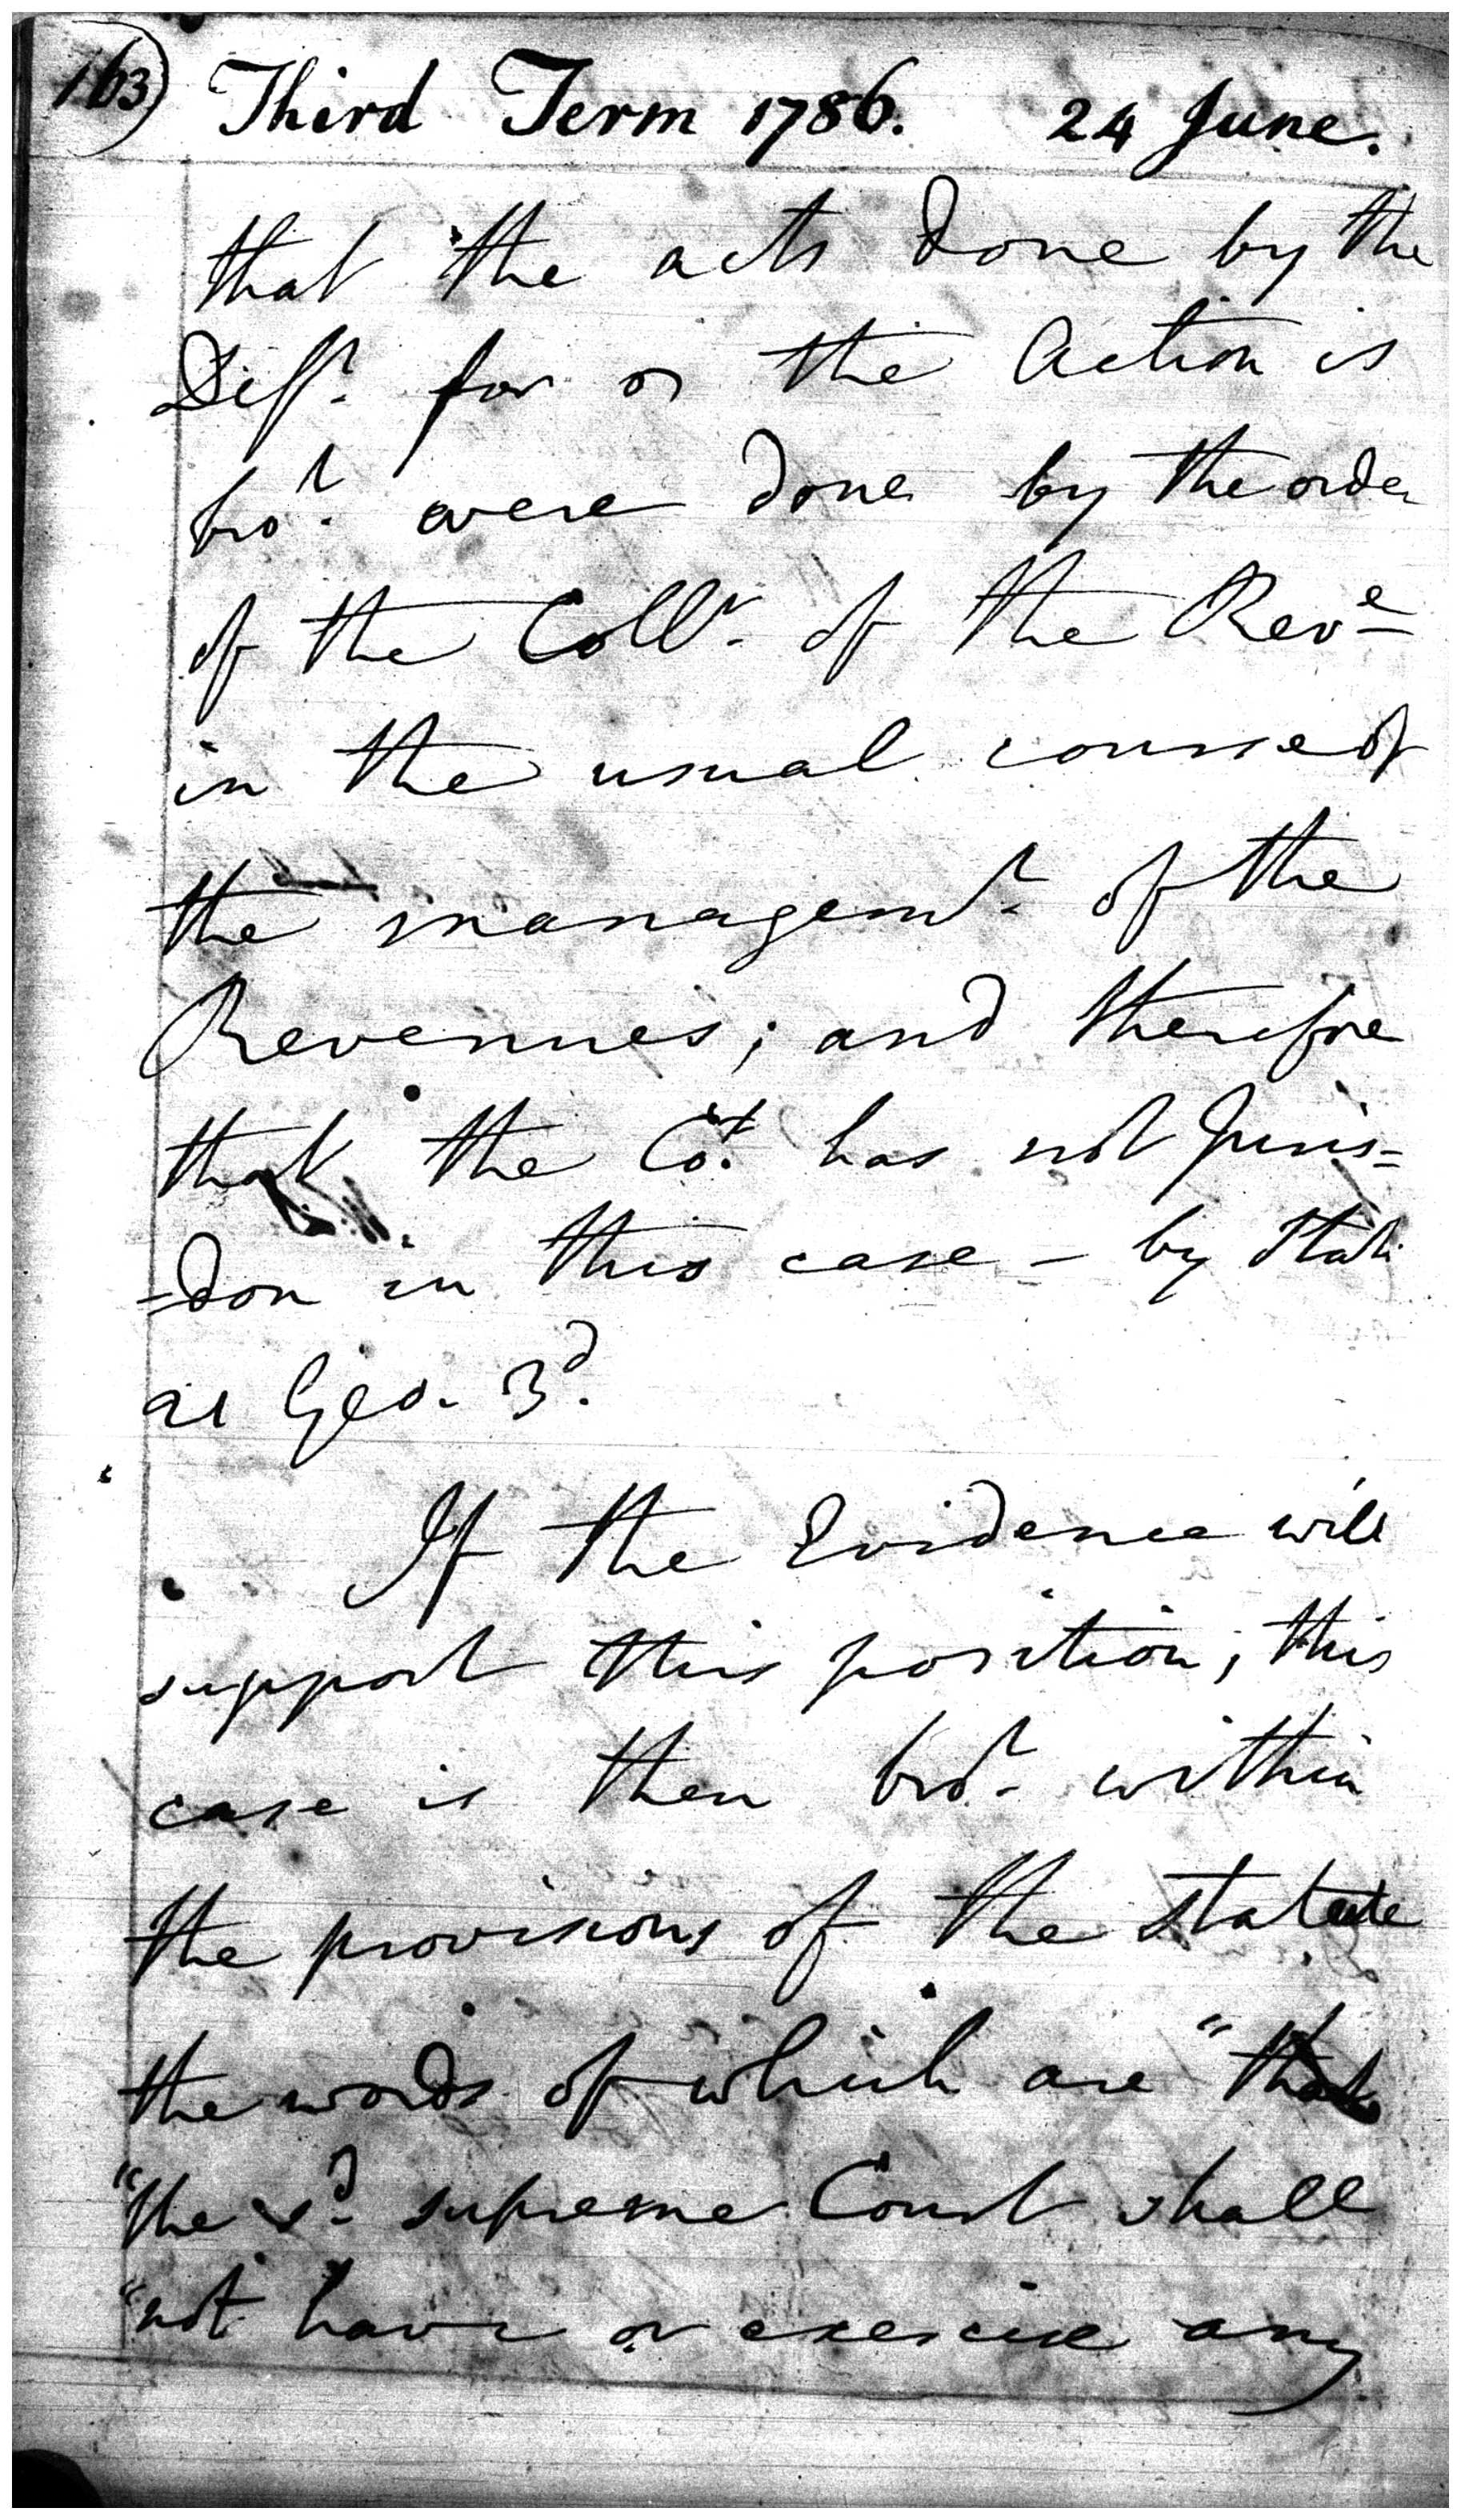 163) Third Term 1786. 24 June.
that the acts done by the
Deft. for the Action is
brot. were done by the order
of the Collr. of the Reve
in the usual course of
the managemt. of the
Revenues; and therefore
that the Cot. has not Juris=
=don in this case - by Stat:
21 Geo. 3d.
If the Evidence will
support this position, this
case is then brot. within
the provisions of the statute
the words of which are "that
"the sd. supreme Court shall
"not have or exercise any